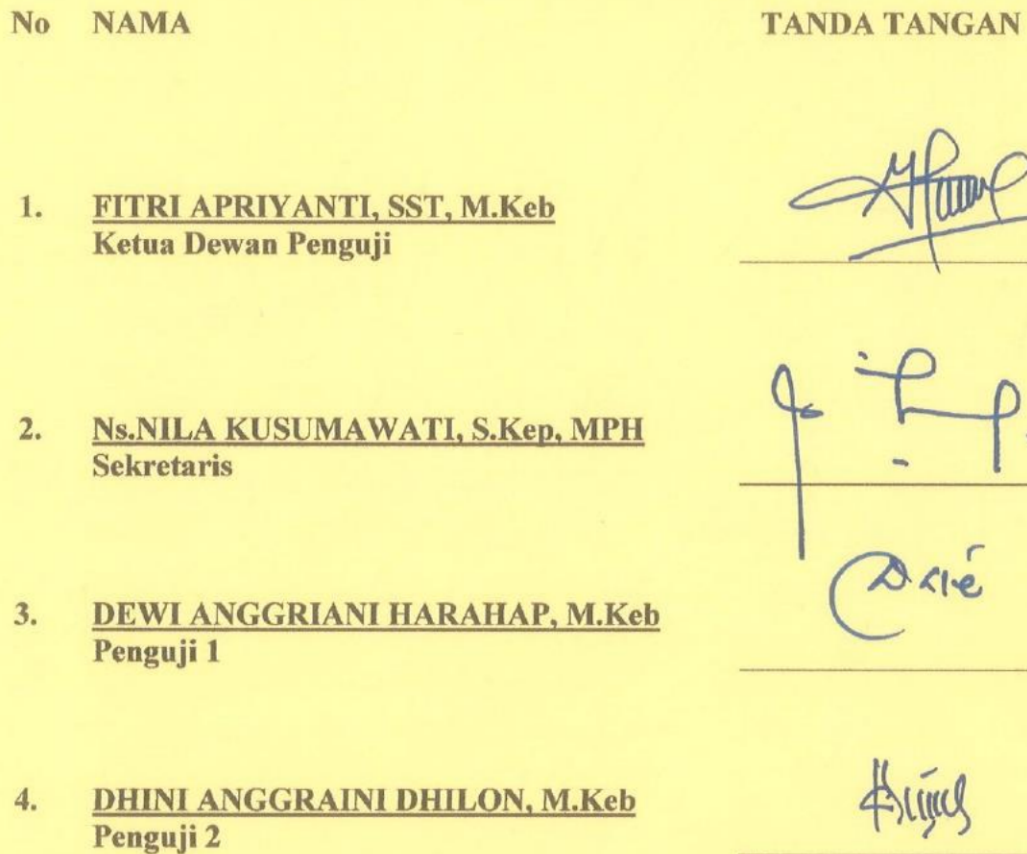 No NAMA TANDA TANGAN
1. FITRI APRIYANTI, SST, M.Keb
Ketua Dewan Penguji
2. Ns.NILA KUSUMAWATI, S.Kep, MPH
Sekretaris
3. DEWI ANGGRIANI HARAHAP, M.Keb
Penguji 1
4. DHINI ANGGRAINI DHILON, M.Keb
Penguji 2